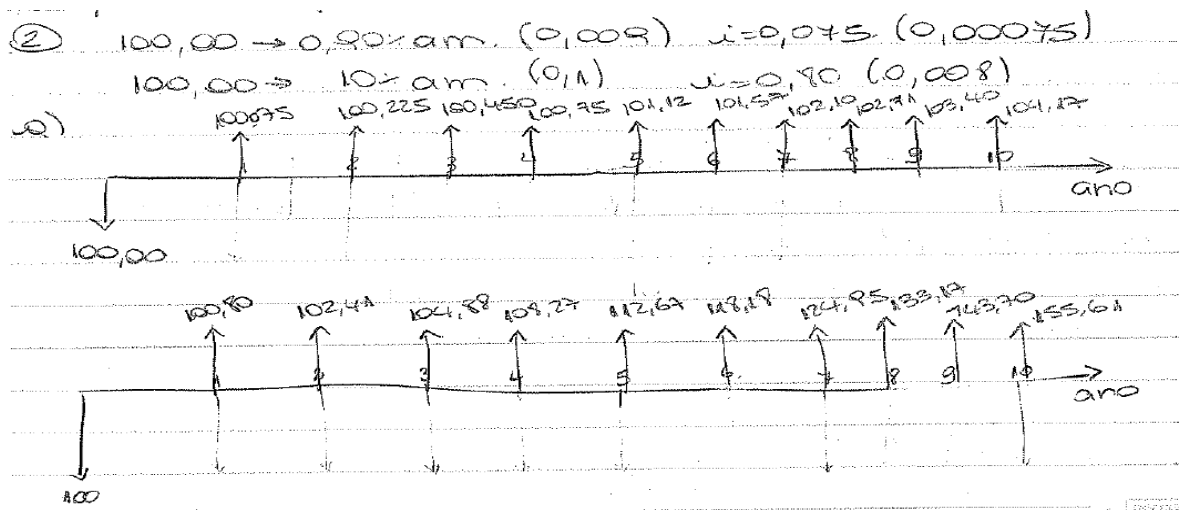 ② 100,00 → 0,90% am. (0,009) i=0,075. (0,00075)
100,00 → 10% am. (0,1) i=0,80 (0,008)
a) 100,075 100,225 100,450 100,75 101,12 101,57 102,10 102,71 103,40 104,17
1 2 3 4 5 6 7 8 9 10
ano
100,00
100,80 102,41 104,88 108,27 112,67 118,18 124,95 133,17 143,70 155,61
1 2 3 4 5 6 7 8 9 10
ano
100